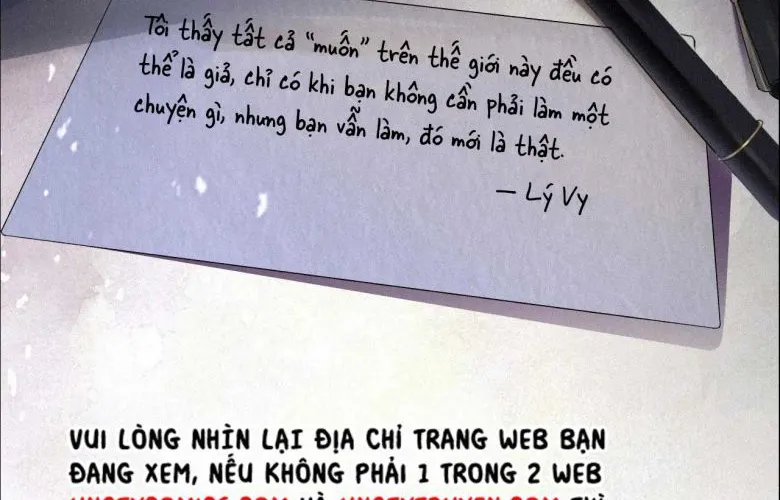 Tôi thấy tất cả "muốn" trên thế giới này đều có
thể là giả, chỉ có khi bạn không cần phải làm một
chuyện gì, nhưng bạn vẫn làm, đó mới là thật.
— Lý Vy
VUI LÒNG NHÌN LẠI ĐỊA CHỈ TRANG WEB BẠN
ĐANG XEM, NẾU KHÔNG PHẢI 1 TRONG 2 WEB